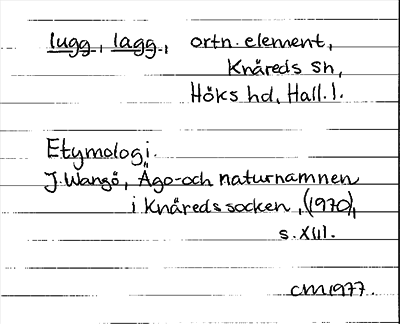 lugg-, lagg-, ortn. element,
Knäreds sn,
Höks hd, Hall. l.
Etymologi.
J. Wangö, Ägo- och naturnamnen
i Knäreds socken, (1970),
s. XIII.
CM 1977.